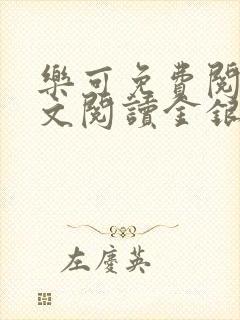 樂可免費閱
文閱讀金銀
左慶英